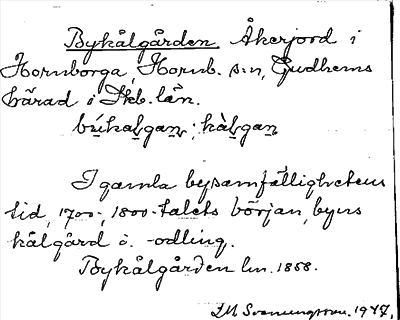 Bykålgården. Åkerjord i
Hornborga, Hornb. s:n, Gudhems
härad i Skb. län.
búkalgan; kàlgan
I gamla bysamfällighetens
tid, 1700-, 1800-talets början, byns
kålgård o. -odling.
Bykålgården lm. 1858.
Svenungsson. 1947.